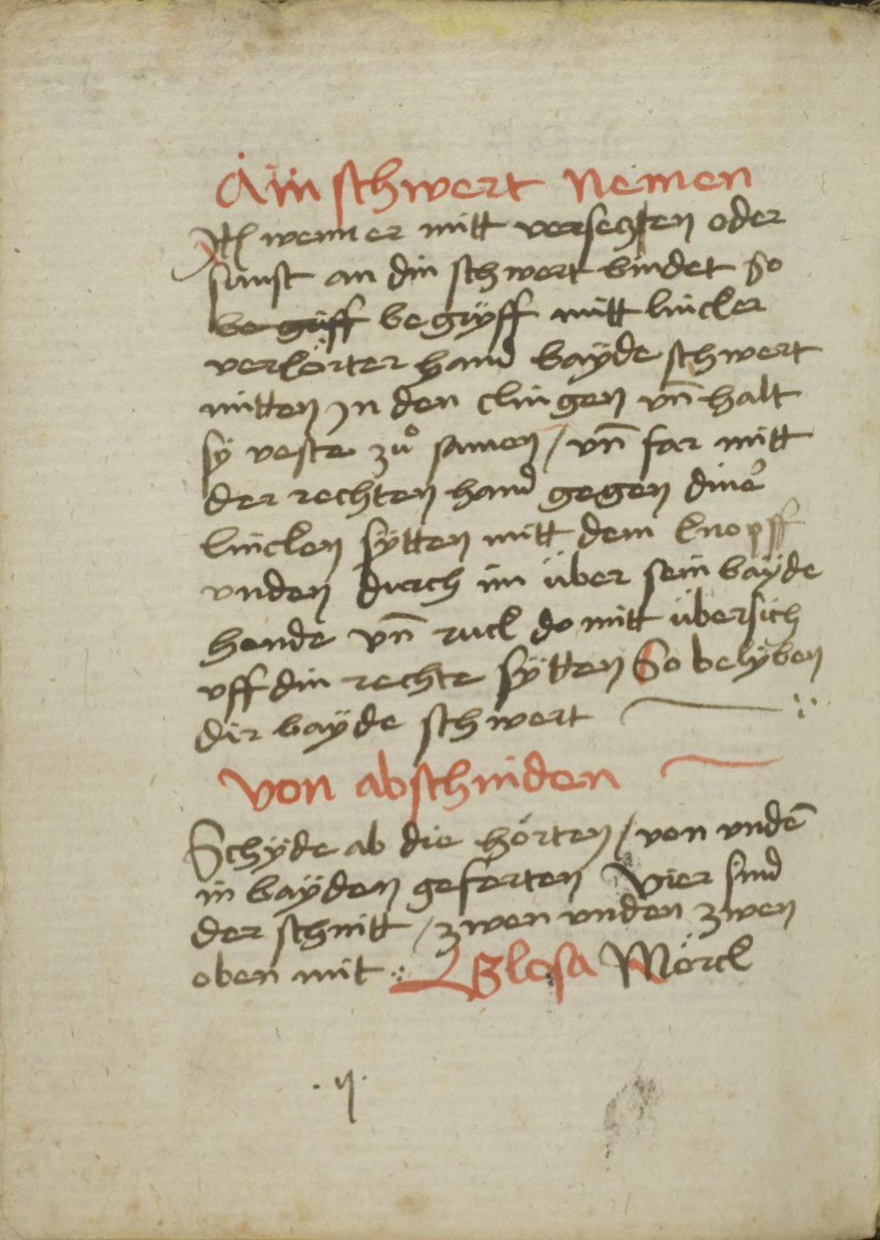 Ain schwert nemen
Itē wenn er mitt verseczten oder
sunst an din schwert bindet So
be griff begryff mitt lincker
verkörter hand bayde schwert
mitten jn den clingen vn̄ halt
sÿ veste zuͦ samen / vn̄ far mitt
der rechten hand gegen dineꝰ
lincken sÿtten mitt dem knopff
vnden durch im über sein bayde
hende vn̄ ruck do mitt übersich
vff din rechte sÿtten So belÿben
dir baÿde schwert
von abschniden
Schÿde ab die hörten / von vndē
in baÿden geferten Vier sind
der schnitt / zwen vnden zwen
oben mit Glosa Mörck
. ij .